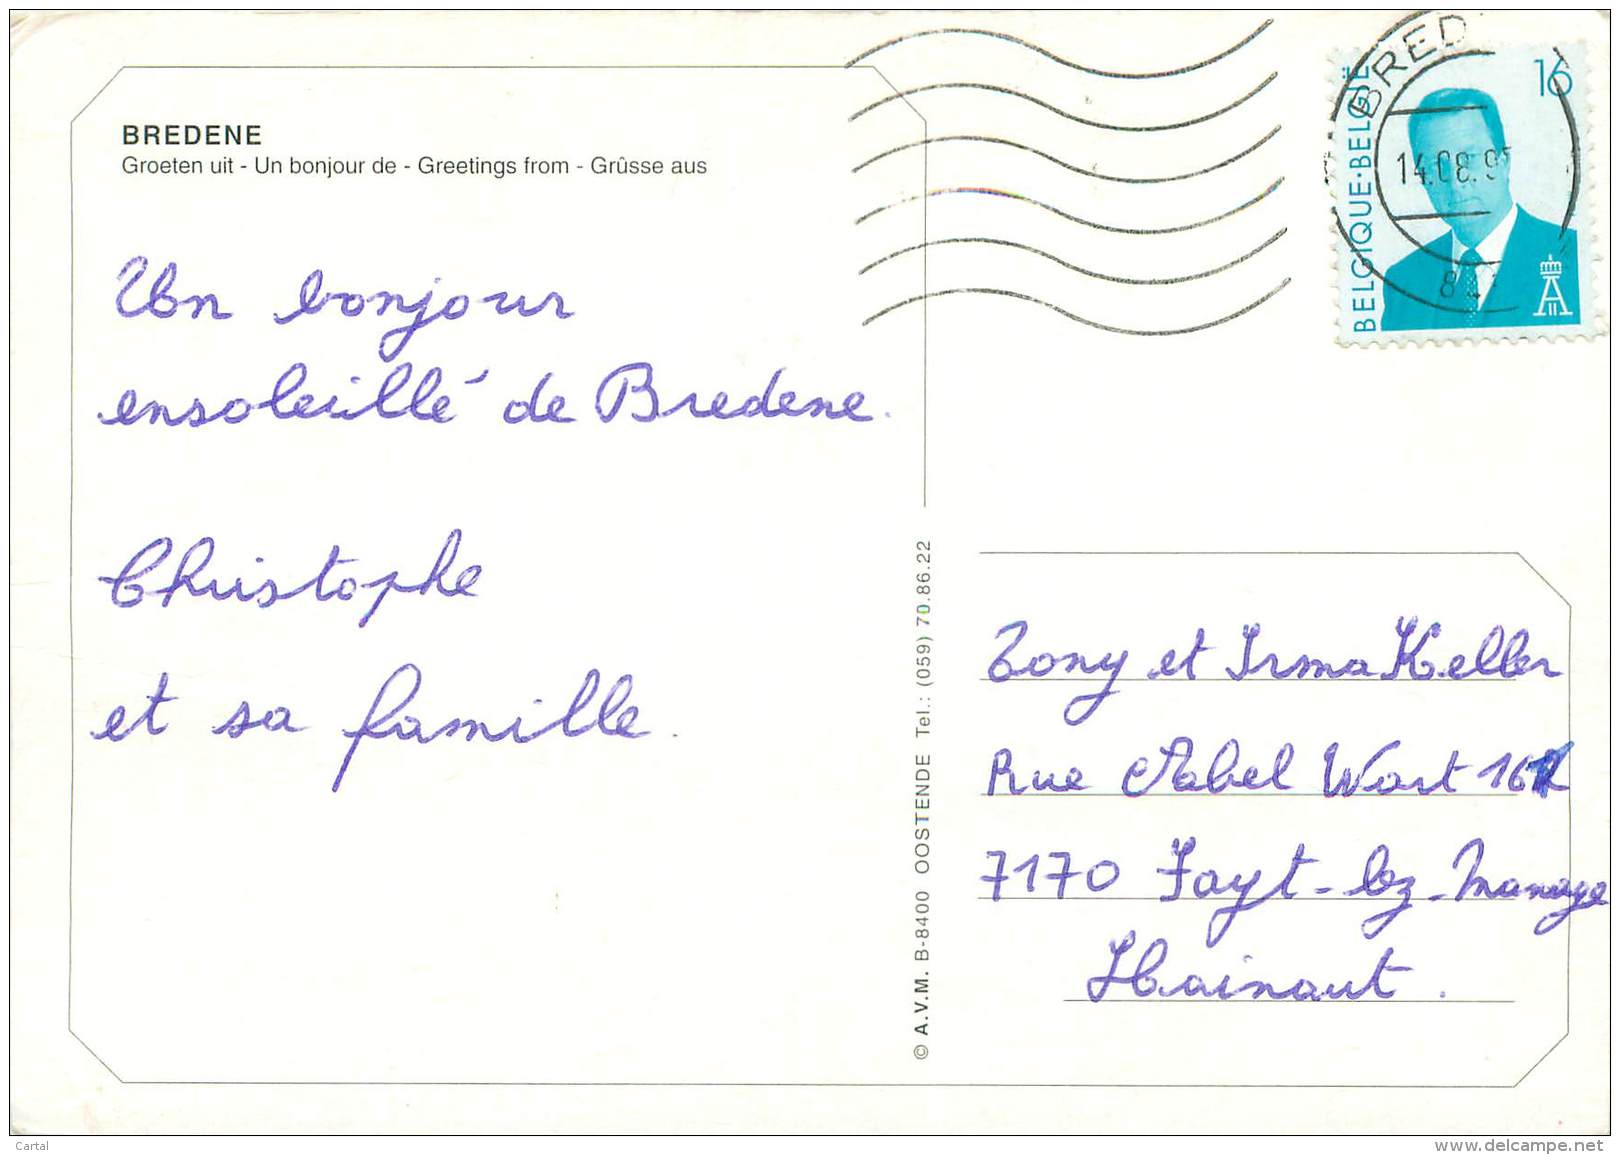 BREDENE
Groeten uit - Un bonjour de - Greetings from - Grûsse aus
Un bonjour
ensoleillé de Bredene.
Christophe
et sa famille.
© A.V.M. B-8400 OOSTENDE Tel.: (059) 70.86.22
BRED
14.08.9
8
BELGIQUE·BELGIË
16
Tony et Irma Keller
Rue Abel Wart
7170 Fayt-lez-Manage
Hainaut.
Cartal
www.delcampe.net